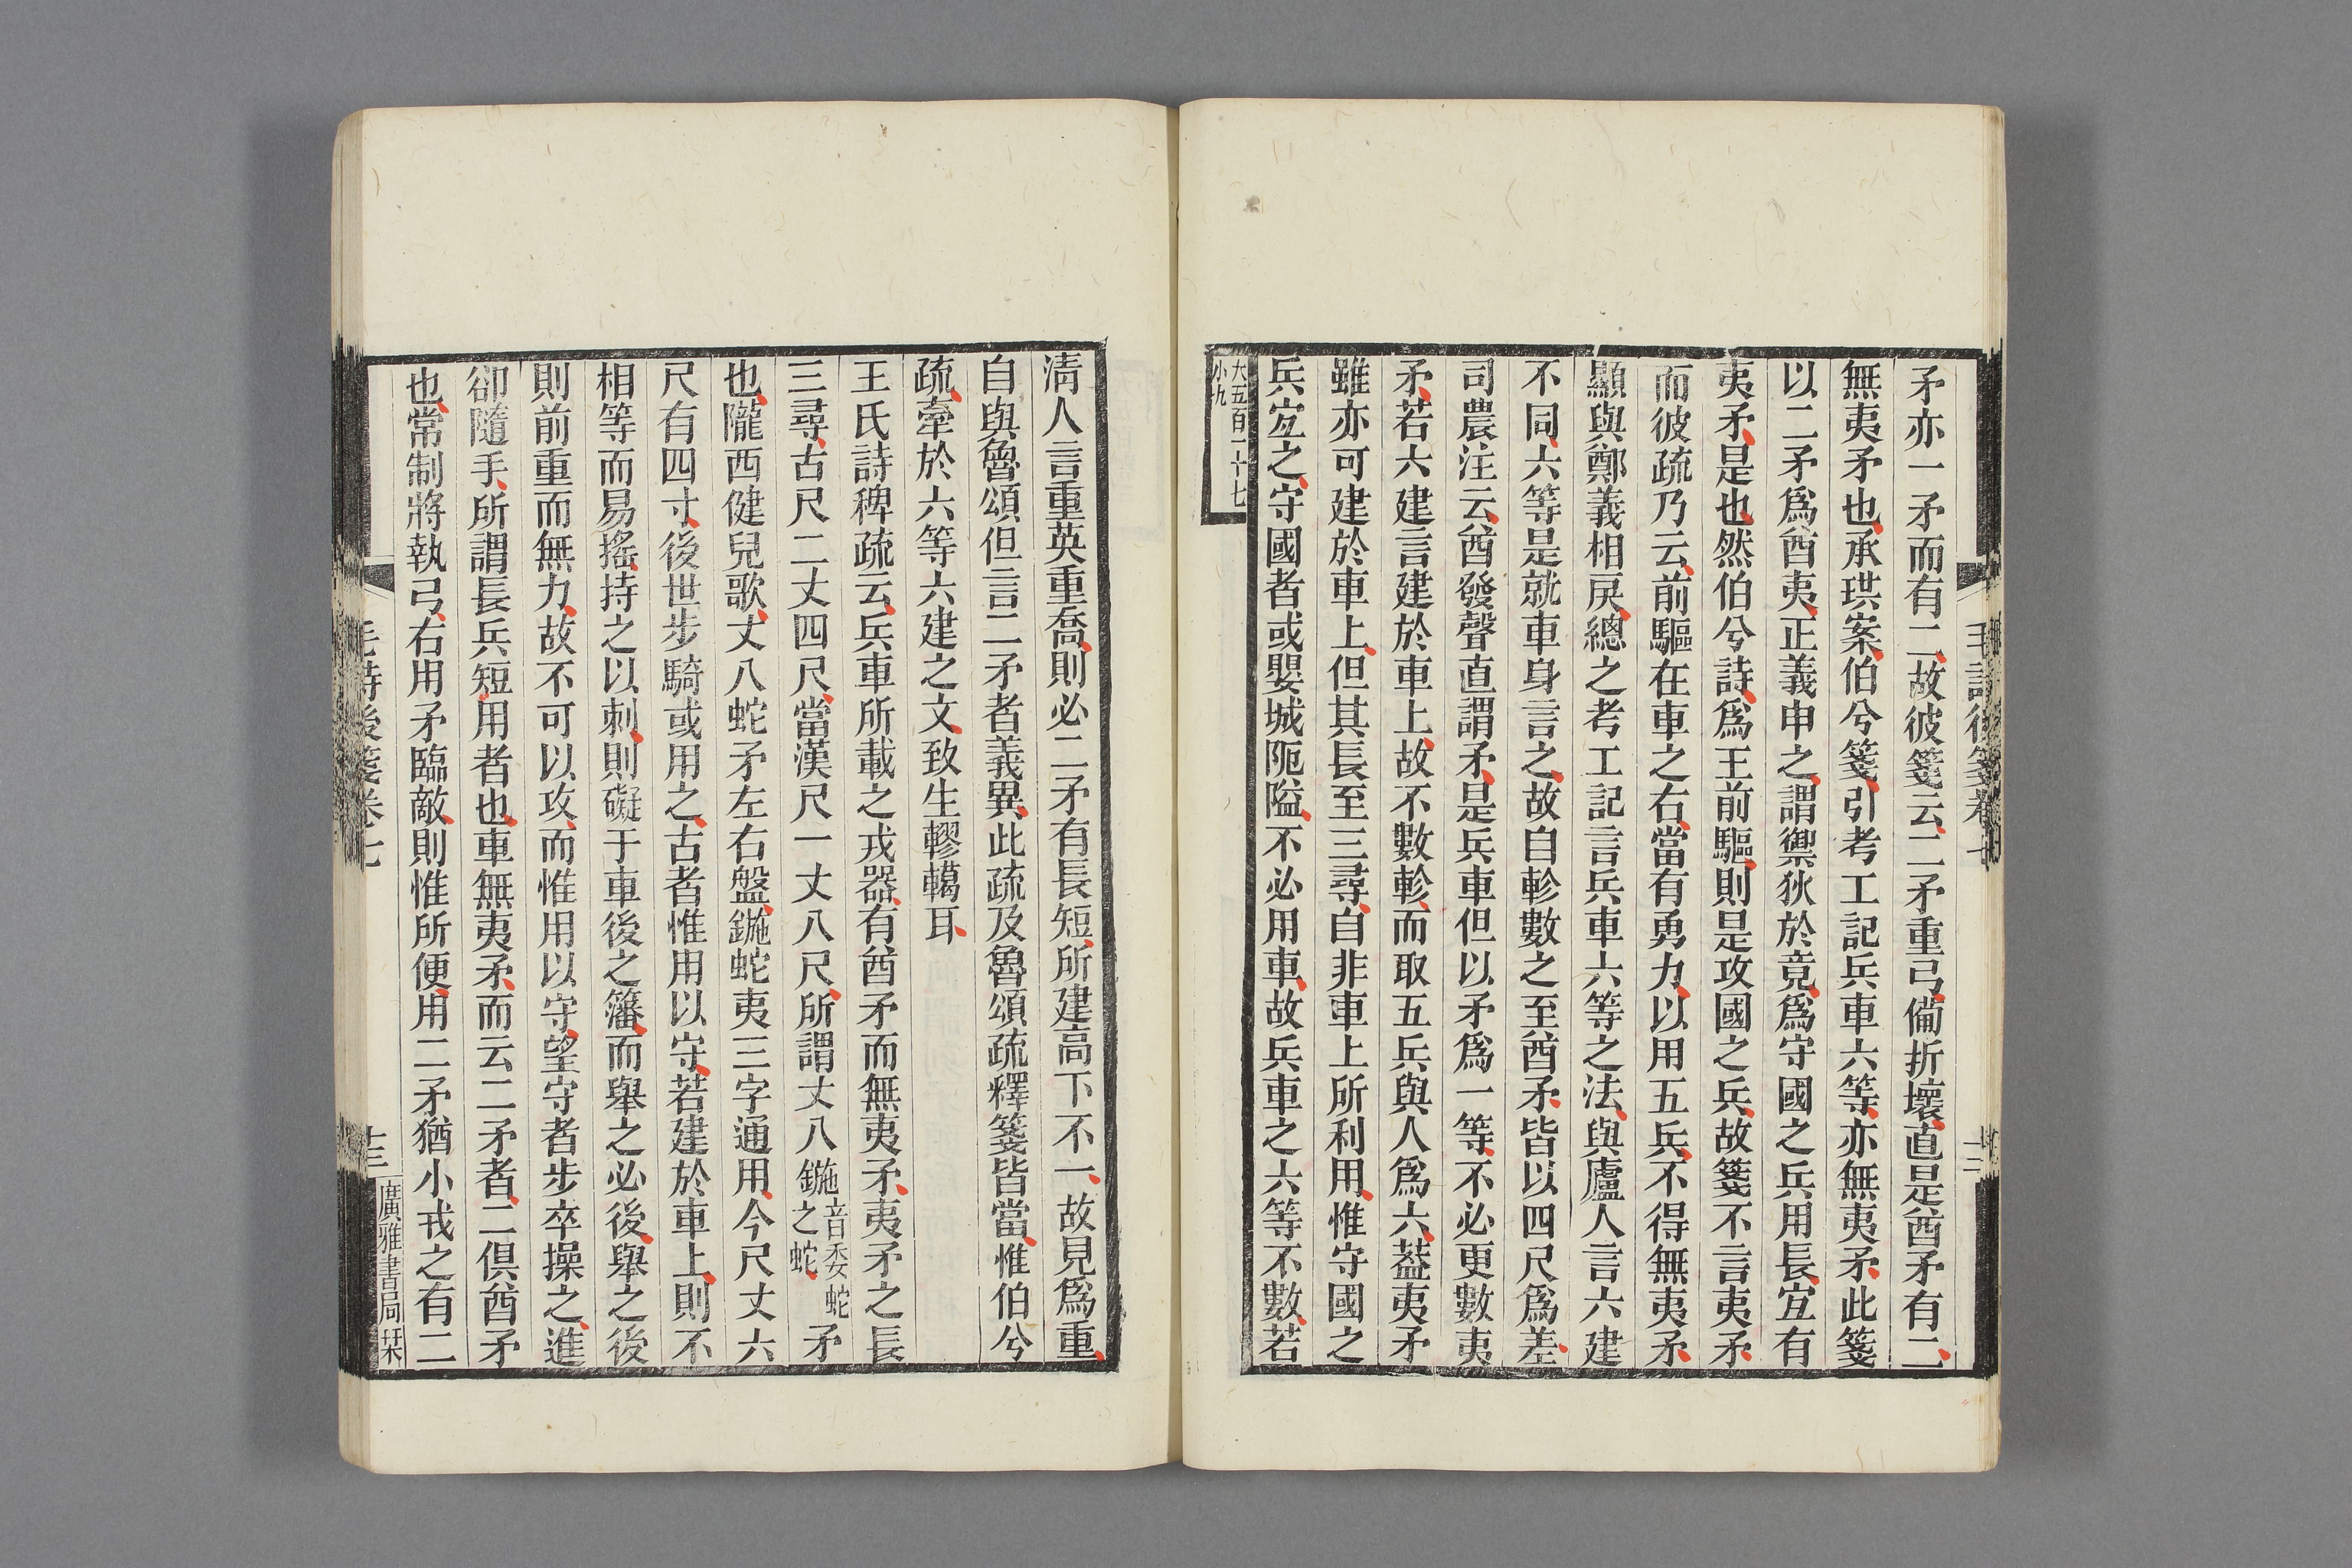 矛亦一矛而有二故彼箋云二矛重弓僃折壞直是酋矛有二
無夷矛也承珙案伯兮箋引考工記兵車六等亦無夷矛此箋
以二矛爲酋夷正義申之謂禦狄於竟爲守國之兵用長宜有
夷矛是也然伯兮詩爲王前驅則是攻國之兵故箋不言夷矛
而彼疏乃云前驅在車之右當有勇力以用五兵不得無夷矛
顯與鄭義相戾總之考工記言兵車六等之法與廬人言六建
不同六等是就車身言之故自軫數之至酋矛皆以四尺爲差
司農注云酋發聲直謂矛是兵車但以矛爲一等不必更數夷
矛若六建言建於車上故不數軫而取五兵與人爲六葢夷矛
雖亦可建於車上但其長至三尋自非車上所利用惟守國之
兵宜之守國者或嬰城阨隘不必用車故兵車之六等不數若
大五百一十七
小九
清人言重英重喬則必二矛有長短所建高下不一故見爲重
自與魯頌但言二矛者義異此疏及魯頌疏釋箋皆當惟伯兮
疏牽於六等六建之文致生轇轕耳
王氏詩稗疏云兵車所載之戎器有酋矛而無夷矛夷矛之長
三尋古尺二丈四尺當漢尺一丈八尺所謂丈八鍦音委蛇之蛇矛
也隴西健兒歌丈八蛇矛左右盤鍦蛇夷三字通用今尺丈六
尺有四寸後世步騎或用之古者惟用以守若建於車上則不
相等而易搖持之以刺則礙于車後之籓而舉之必後舉之後
則前重而無力故不可以攻而惟用以守望守者步卒操之進
卻隨手所謂長兵短用者也車無夷矛而云二矛者二俱酋矛
也常制將執弓右用矛臨敵則惟所便用二矛猶小戎之有二
毛詩後箋卷七
十三
廣雅書局栞